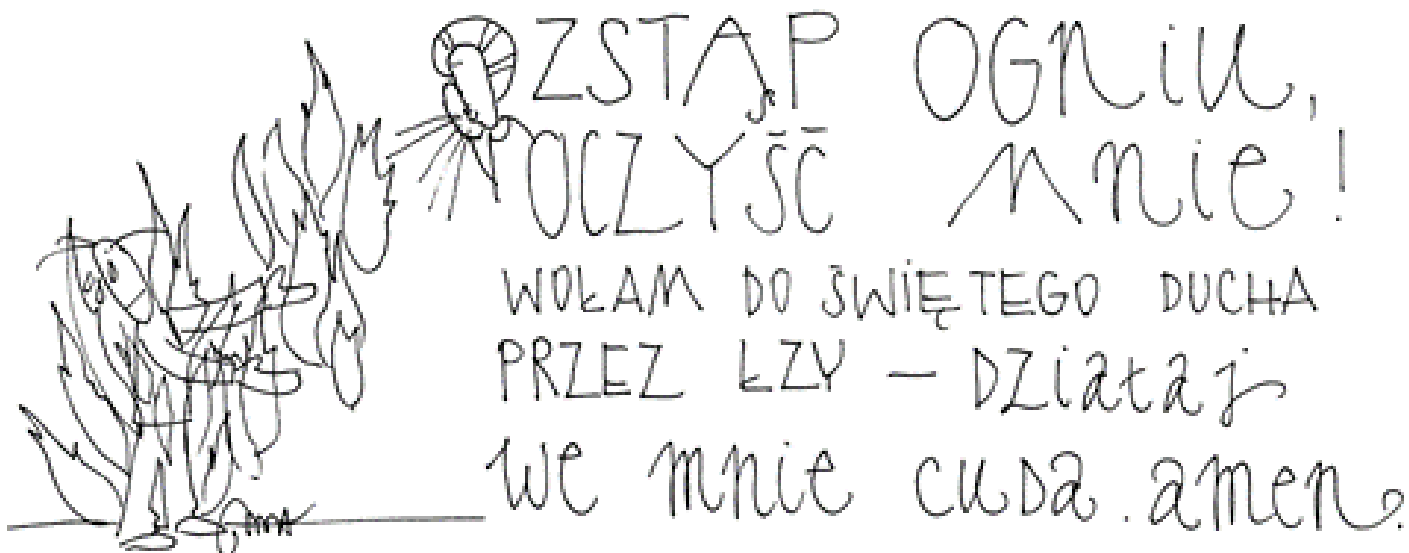 ZSTĄP OGNIU,
OCZYŚĆ MNIE!
WOŁAM DO ŚWIĘTEGO DUCHA
PRZEZ ŁZY — DZiałaj
we mnie cuDa. amen.